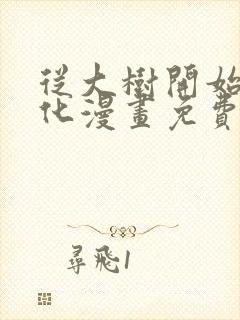 從大樹開始
化漫畫免費
尋飛1